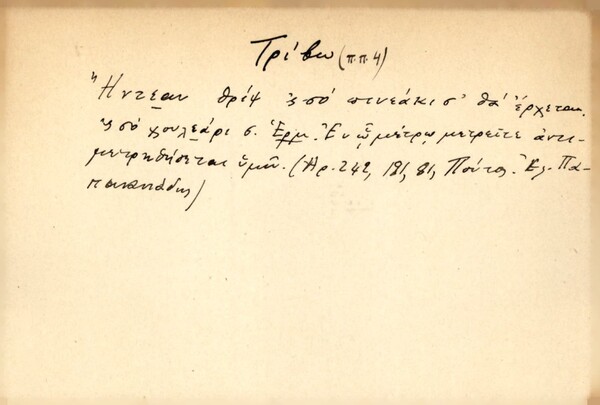 Τρίβω (π.π. 4)
"Ήντεαν θρίψ 'ς σό πινεάκι σ' θά έρχεται
'ς σό χουλεάρι σ. Ἑρμ. Ἐν ᾧ μέτρῳ μετρεῖτε ἀντι-
μετρηθήσεται ὑμῖν. (Ἀρ. 242, 181, 81, Πόντος. Ἑλ. Πα-